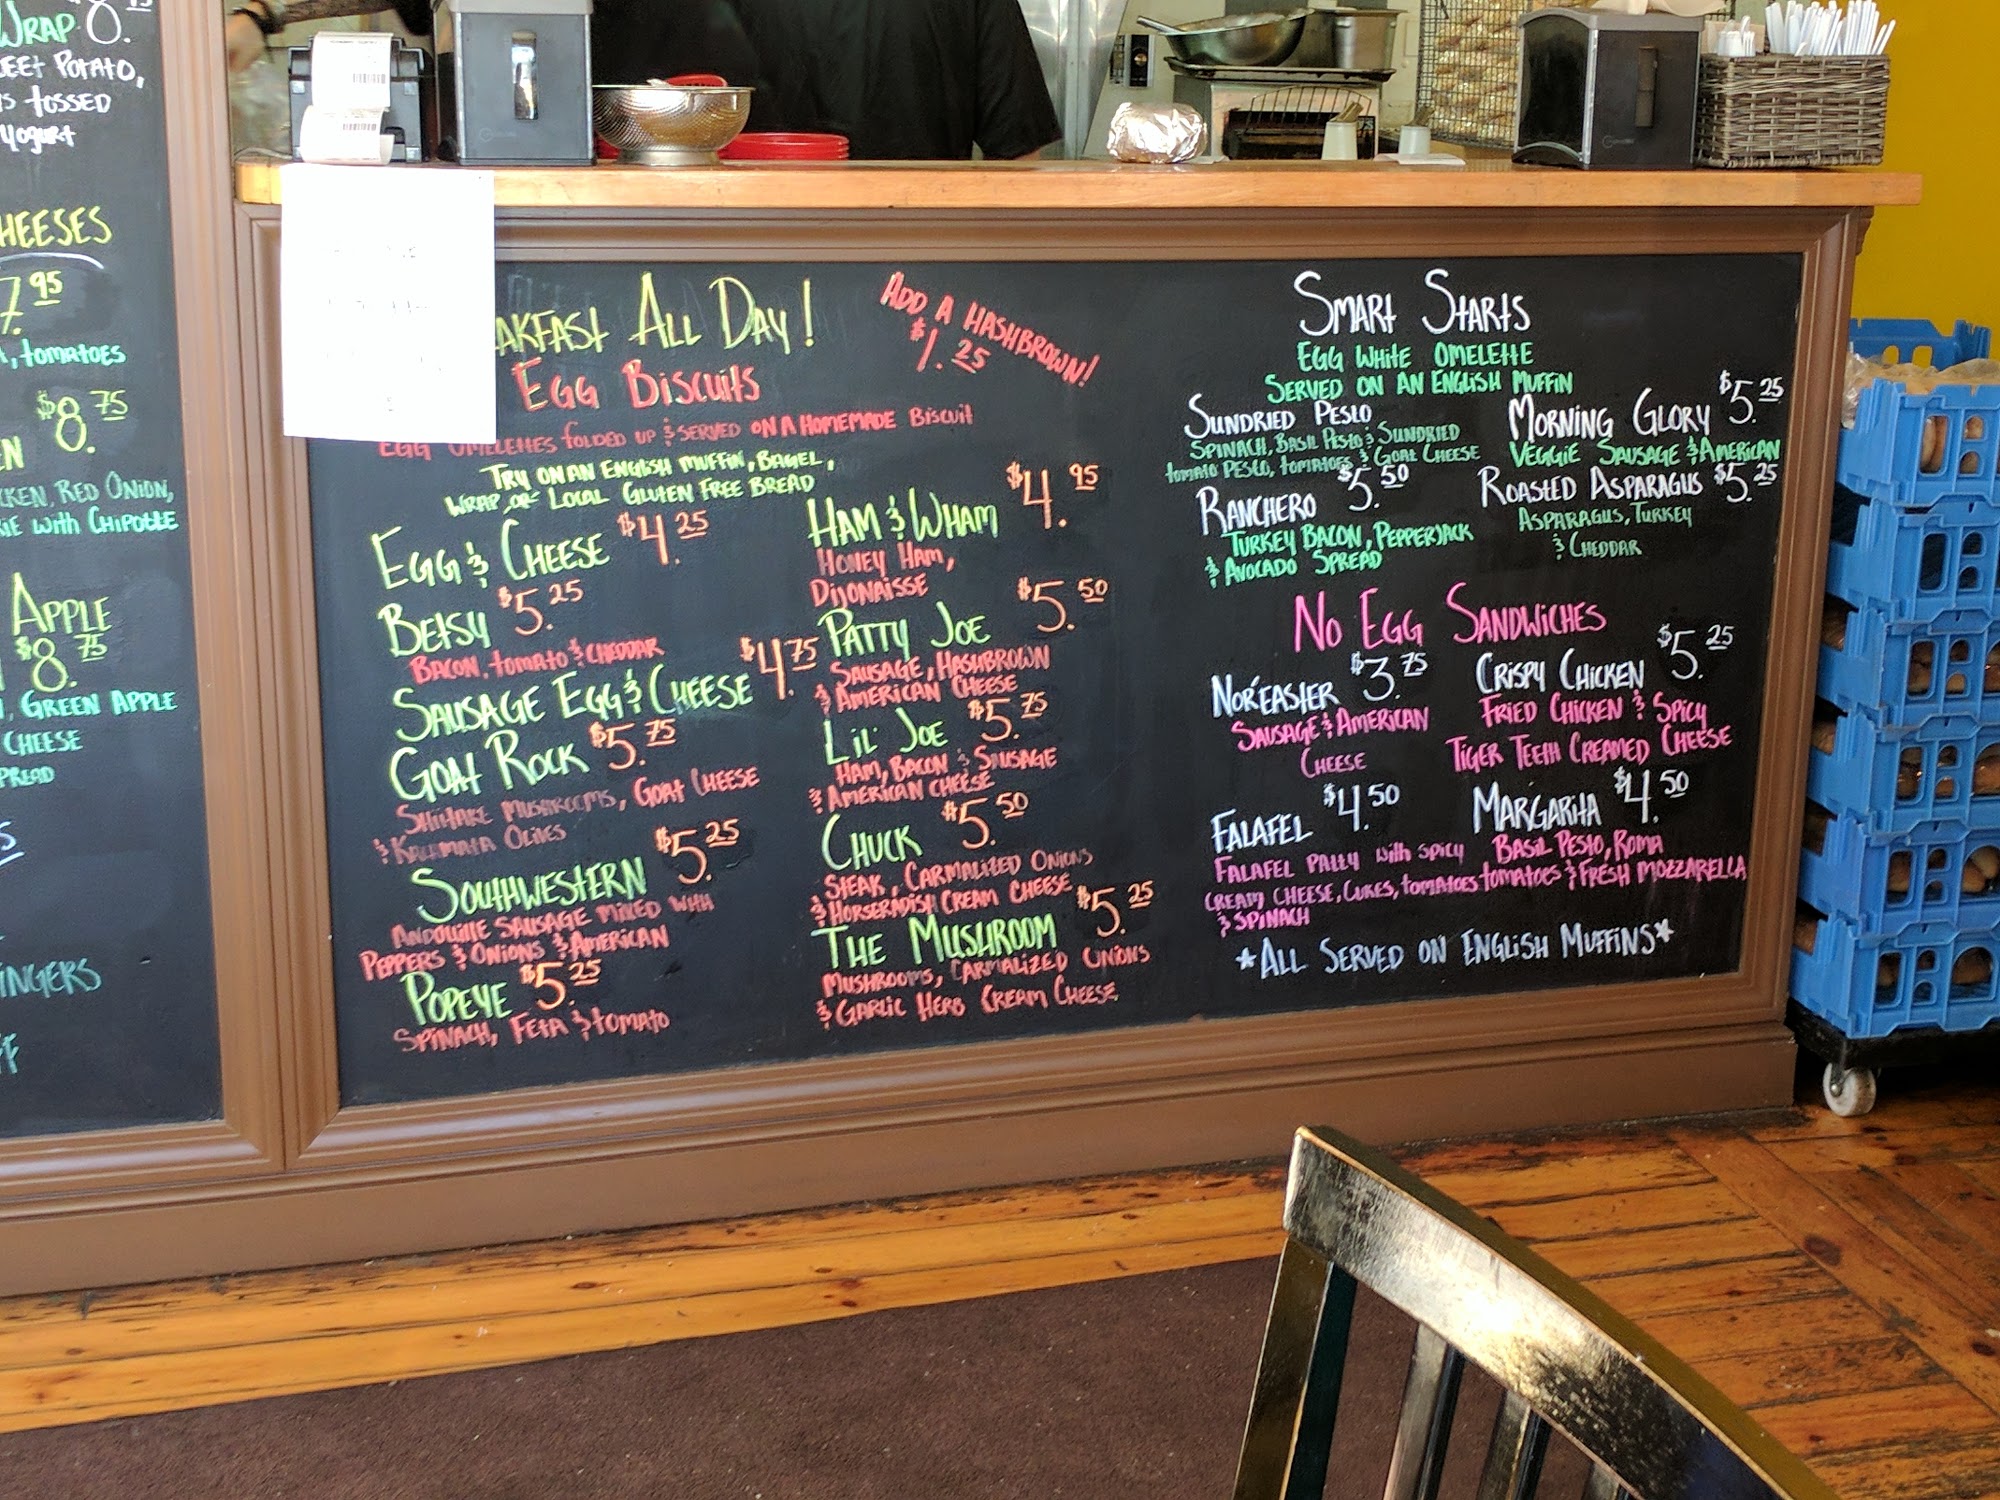 WRAP 8.
POTATO,
TOSSED
YOGURT
HEESES
7.95
, TOMATOES
$8.75
RED ONION,
WITH CHIPOTLE
APPLE
$8.75
, GREEN APPLE
CHEESE
AKFAST ALL DAY!
ADD A HASHBROWN!
$1.25
EGG BISCUITS
EGG OMELETTES FOLDED UP & SERVED ON A HOMEMADE BISCUIT
TRY ON AN ENGLISH MUFFIN, BAGEL,
WRAP, OR LOCAL GLUTEN FREE BREAD
EGG & CHEESE $4.25
BETSY $5.25
BACON, TOMATO & CHEDDAR
SAUSAGE EGG & CHEESE $4.75
GOAT ROCK $5.75
SHIITAKE MUSHROOMS, GOAT CHEESE
& KALAMATA OLIVES
SOUTHWESTERN $5.25
ANDOUILLE SAUSAGE MIXED WITH
PEPPERS & ONIONS & AMERICAN
POPEYE $5.25
SPINACH, FETA & TOMATO
HAM & WHAM $4.95
HONEY HAM,
DIJONAISSE
PATTY JOE $5.50
SAUSAGE, HASHBROWN
& AMERICAN CHEESE
LIL' JOE $5.75
HAM, BACON & SAUSAGE
& AMERICAN CHEESE
CHUCK $5.50
STEAK, CARMALIZED ONIONS
& HORSERADISH CREAM CHEESE
THE MUSHROOM $5.25
MUSHROOMS, CARMALIZED ONIONS
& GARLIC HERB CREAM CHEESE
SMART STARTS
EGG WHITE OMELETTE
SERVED ON AN ENGLISH MUFFIN
SUNDRIED PESTO
SPINACH, BASIL PESTO & SUNDRIED
TOMATO PESTO, TOMATOES & GOAT CHEESE
RANCHERO $5.50
TURKEY BACON, PEPPERJACK
& AVOCADO SPREAD
MORNING GLORY $5.25
VEGGIE SAUSAGE & AMERICAN
ROASTED ASPARAGUS $5.25
ASPARAGUS, TURKEY
& CHEDDAR
NO EGG SANDWICHES
NOR'EASTER $3.75
SAUSAGE & AMERICAN
CHEESE
CRISPY CHICKEN $5.25
FRIED CHICKEN & SPICY
TIGER TEETH CREAMED CHEESE
FALAFEL $4.50
FALAFEL PATTY WITH SPICY
CREAM CHEESE, CUKES, TOMATOES
& SPINACH
MARGARITA $4.50
BASIL PESTO, ROMA
TOMATOES & FRESH MOZZARELLA
*ALL SERVED ON ENGLISH MUFFINS*